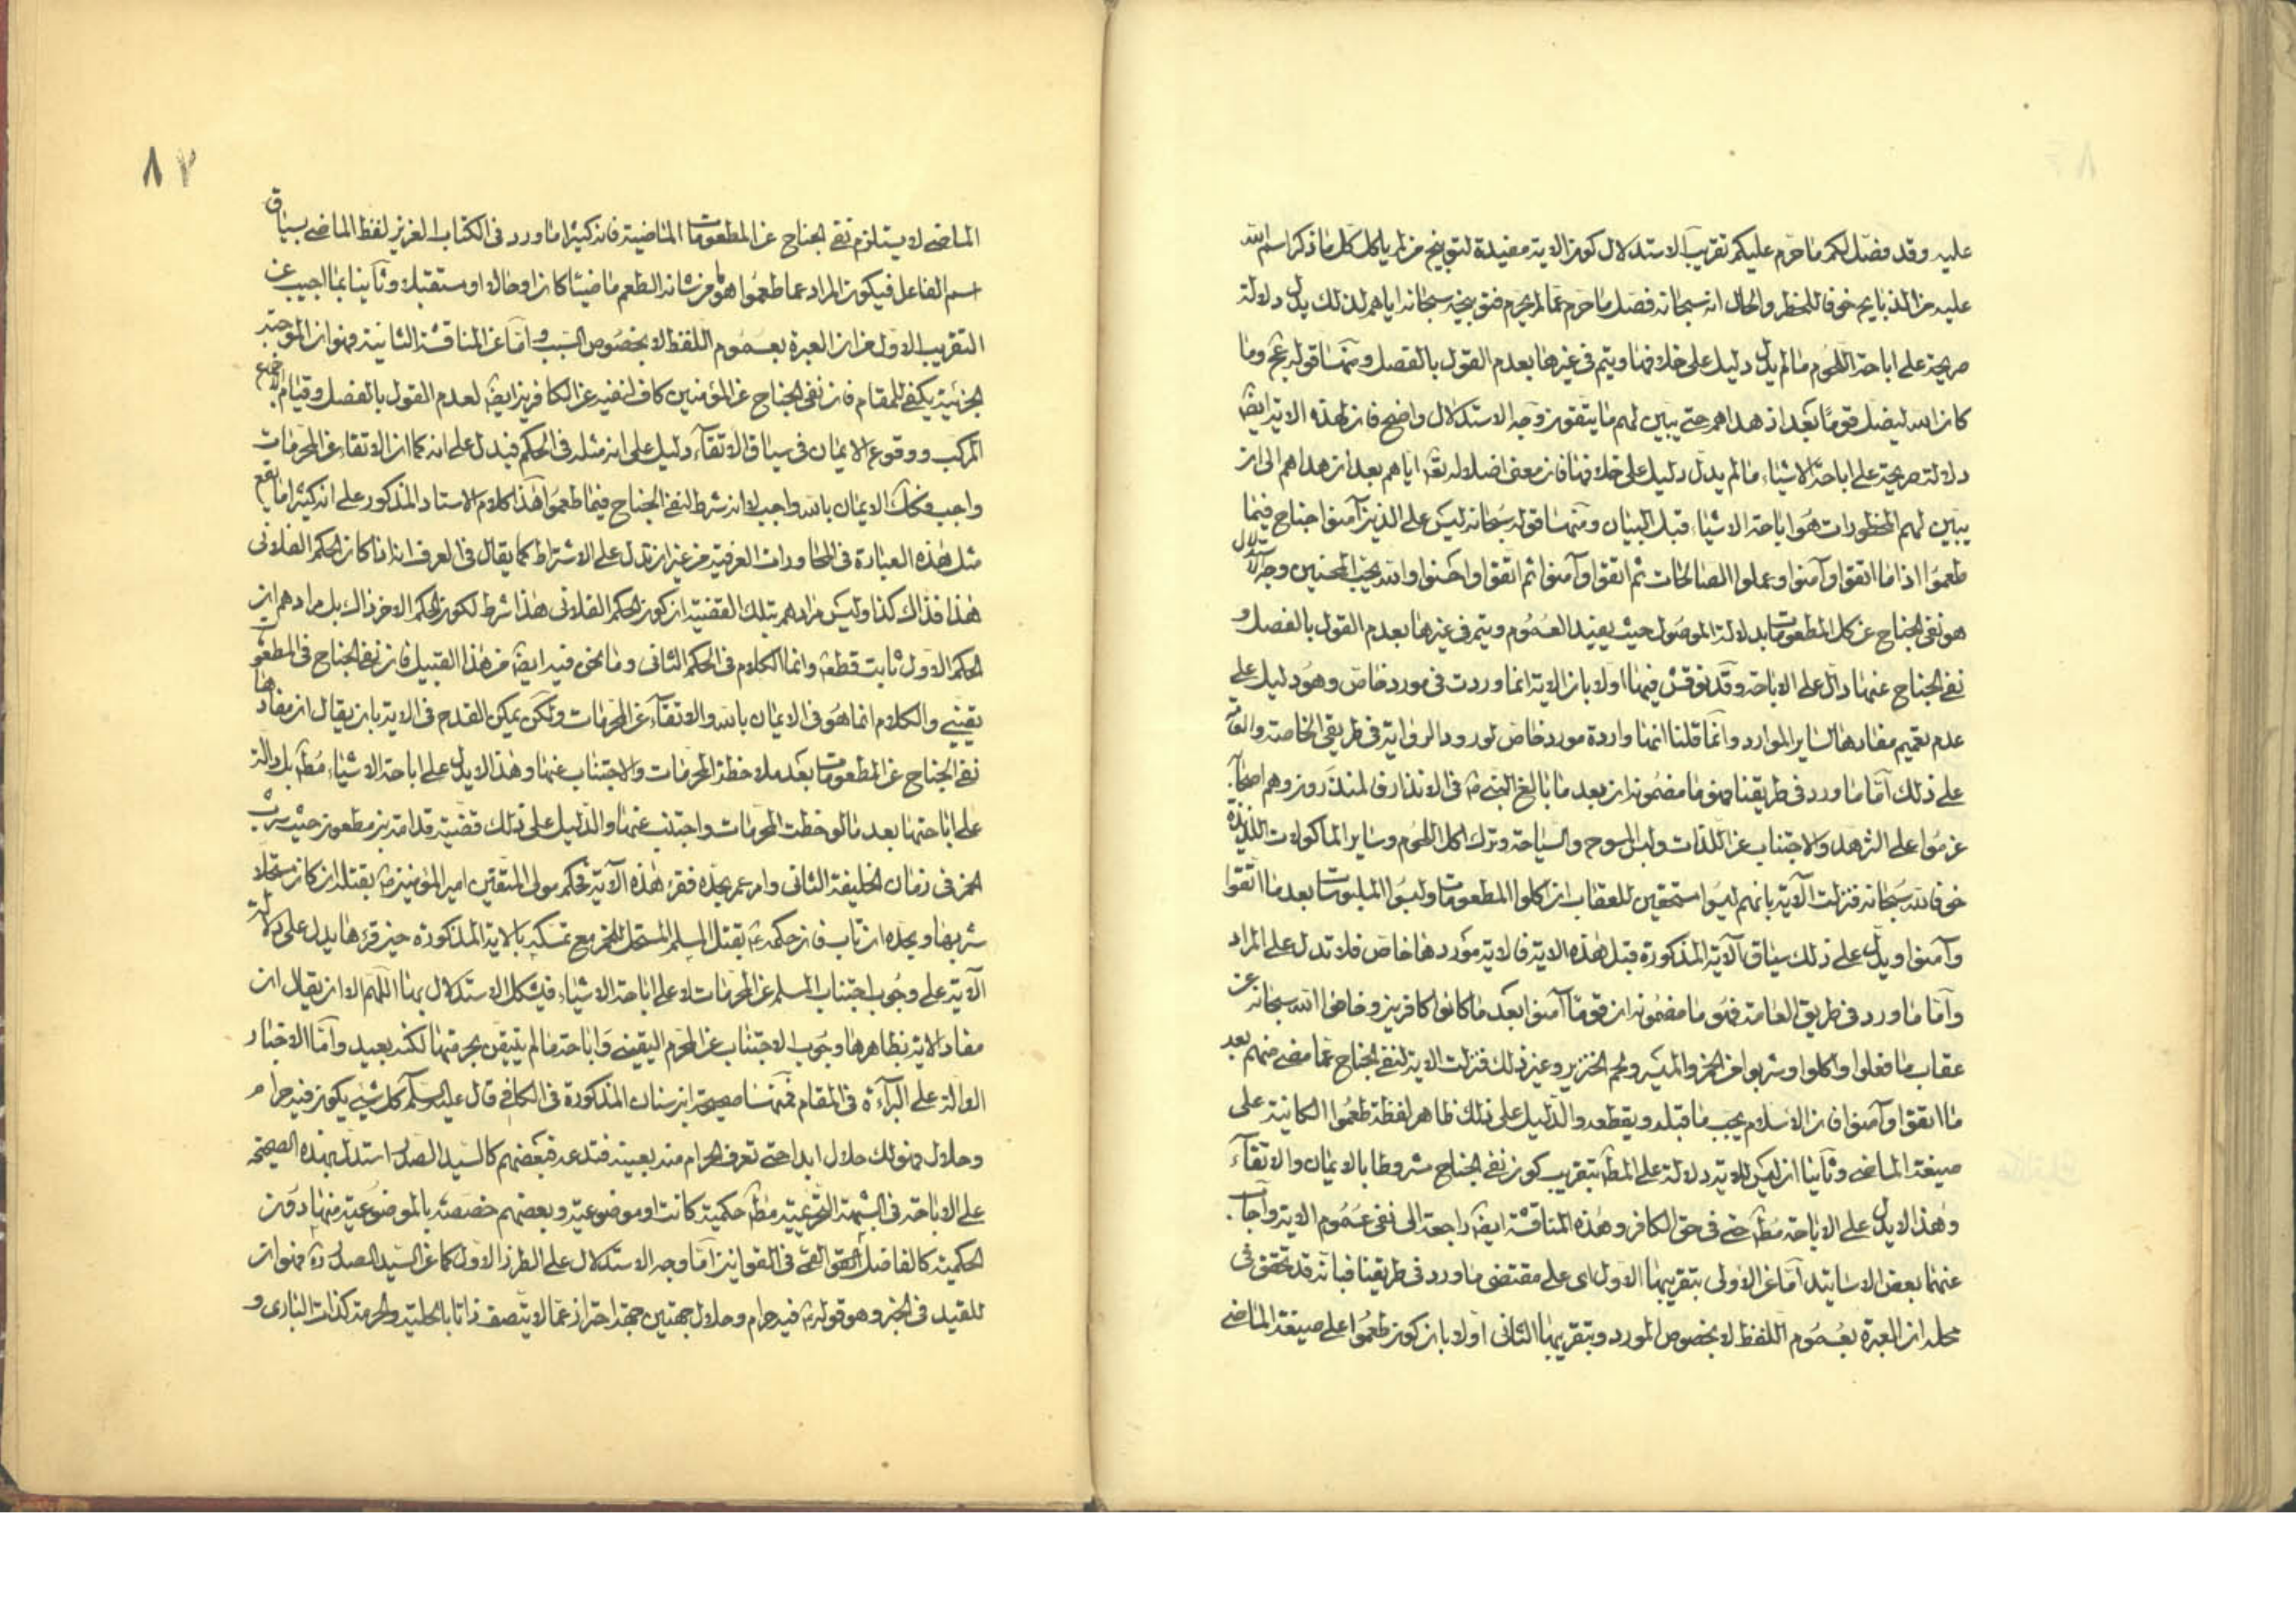 عليه وقد فصّل لكم ما حرّم عليكم تقريب الاستدلال كون الاية مفيدة لتوبيخ من لم ياكل كل ما ذكر اسم الله
عليه من الذبايح خوفا للحظر والحال انه سبحانه فصّل ما حرّم عما لم يحرم فتوبيخه سبحانه اياهم لذلك يدل دلالة
صريحة على اباحة اللحوم ما لم يدل دليل على خلافها ويتم فى غيرها بعدم القول بالفصل ومنها قوله عج وما
كان الله ليضل قومًا بعد اذ هداهم حتى يبين لهم ما يتقون وجه الاستدلال واضح فان لهذه الاية ايضا
دلالة صريحة على اباحة الاشياء ما لم يدل دليل على خلافها فان معنى اضلاله تعا اياهم بعد ان هداهم الى ان
يبين لهم المحظورات هو اباحة الاشياء قبل البيان ومنها قوله سبحانه ليس على الذين آمنوا جناح فيما
طعموا اذا ما اتقوا وآمنوا وعملوا الصالحات ثم اتقوا وآمنوا ثم اتقوا واحسنوا والله يحب المحسنين وجه الاستدلال
هو نفى الجناح عن كل المطعومات بدلالة الموصول حيث يفيد العموم ويتم فى غيرها بعدم القول بالفصل و
نفى الجناح عنها دال على الاباحة وقد نوقش فيها اولا بان الاية انما وردت فى مورد خاص وهو دليل على
عدم تعميم مفادها لساير الموارد وانما قلنا انها واردة مورد خاص لورود الرواية فى طريقى الخاصة والعامة
على ذلك امّا ما ورد فى طريقنا فهو ما مضمونه ان بعد ما بالغ النبى ص فى الانذار فالمنذرون وهم اصحابه
عزموا على الزهد والاجتناب عن اللذات ولبس المسوح والسياحة وترك اكل اللحوم وساير الماكولات اللذيذة
خوفا لله سبحانه فنزلت الآية بانهم ليسوا مستحقين للعقاب ان اكلوا المطعومات ولبسوا الملبوسات بعد ما اتقوا
وآمنوا ويدل على ذلك سياق الآية المذكورة قبل هذه الاية فالاية موردها خاص فلا تدل على المراد
وامّا ما ورد فى طريق العامة فهو ما مضمونه ان قومًا آمنوا بعد ما كانوا كافرين وخافوا الله سبحانه عن
عقاب ما فعلوا واكلوا وشربوا من الخمر والميسر ولحم الخنزير وغير ذلك فنزلت الاية لنفى الجناح عما مضى منهم بعد
ما اتقوا وآمنوا فان الاسلام يجب ما قبله ويقطعه والدليل على ذلك ظاهر لفظة طعموا الكائنة على
صيغة الماضى وثانيا ان ليس للاية دلالة على المط بتقريب كون نفى الجناح مشروطا بالايمان والاتقاء
وهذا لا يدل على الاباحة مط حتى فى حق الكافر وهذه المناقشة ايضا راجعة الى نفى عموم الاية واجاب
عنهما بعض الاساتيد امّا عن الاولى بتقريبها الاول اى على مقتضى ما ورد فى طريقنا فبانه قد تحقق فى
محله ان العبرة بعموم اللفظ لا بخصوص المورد وبتقريبها الثانى اولا بان كون طعموا على صيغة الماضى
٨٢
الماضى لا يستلزم نفى الجناح عن المطعومات الماضية فانه كثيرا ما ورد فى الكتاب العزيز لفظ الماضى بسياق
اسم الفاعل فيكون المراد عما طعموا هو ما من شانه الطعم ماضيا كان او حالا او مستقبلا وثانيا بما اجيب عن
التقريب الاول من ان العبرة بعموم اللفظ لا بخصوص السبب وامّا عن المناقشة الثانية فهو ان الموجبة
الجزئية يكفى للمقام فان نفى الجناح عن المؤمنين كاف لنفيه عن الكافرين ايضا لعدم القول بالفصل وقيام الاجماع
المركب ووقوع الايمان فى سياق الاتقاء دليل على انه مثله فى الحكم فيدل على انه كما ان الاتقاء عن المحرمات
واجب فكذلك الايمان بالله واجب لا انه شرط لنفى الجناح فيما طعموا هذا كلام الاستاد المذكور على انه كثيرا ما يقع
مثل هذه العبارة فى المحاورات العرفية من غير ان تدل على الاشتراط كما يقال فى العرف اذا ما كان الحكم الفلانى
هذا فذاك كذا وليس مرادهم بتلك القضية ان كون الحكم الفلانى هذا شرط لكون الحكم الاخر ذاك بل مرادهم ان
الحكم الاول ثابت قطعا وانما الكلام فى الحكم الثانى وما نحن فيه ايضا من هذا القبيل فان نفى الجناح فى المطعوم
يقينى والكلام انما هو فى الايمان بالله والاتقاء عن المحرمات ولكن يمكن القدح فى الاية بان يقال ان مفادها
نفى الجناح عن المطعومات بعد ملاحظة المحرمات والاجتناب عنها وهذا لا يدل على اباحة الاشياء مط بل دالة
على اباحتها بعد ما لوحظت المحرمات واجتنب عنها والدليل على ذلك قضية قدامة بن مظعون حيث شرب
الخمر فى زمان الخليفة الثانى وامر عمر بحده فقرء هذه الآية فحكم مولى المتقين امير المؤمنين ع بقتله ان كان مستحلا
شربها وبحده ان تاب فان حكمه ع بقتل المسلم المستحل للخمر مع تمسكه بالاية المذكورة حين قرءها يدل على دلالة
الآية على وجوب اجتناب المسلم عن المحرمات لا على اباحة الاشياء فيشكل الاستدلال بها اللهم الا ان يقال ان
مفاد الاية بظاهرها وجوب الاجتناب عن المحرم اليقينى واباحة ما لم يتيقن بحرمتها لكنه بعيد وامّا الاخبار
الدالة على البرآءة فى المقام فمنها صحيحة ابن سنان المذكورة فى الكافى قال عليه السلم كل شيئ يكون فيه حرام
وحلال فهو لك حلال ابدا حتى تعرف الحرام منه بعينه فتدعه فبعضهم كالسيد الصدر استدل بهذه الصحيحة
على الاباحة فى الشبهة التحريمية مط حكمية كانت او موضوعية وبعضهم خصصه بالموضوعية منها دون
الحكمية كالفاضل القمى فى القوانين امّا وجه الاستدلال على الطرز الاول كما عن السيد الصدر ره فهو ان
للقيد فى الخبر وهو قوله ع فيه حرام وحلال جهتين جهة احتراز عما لا يتصف ذاتا بالحلية والحرمة كذات البارى و